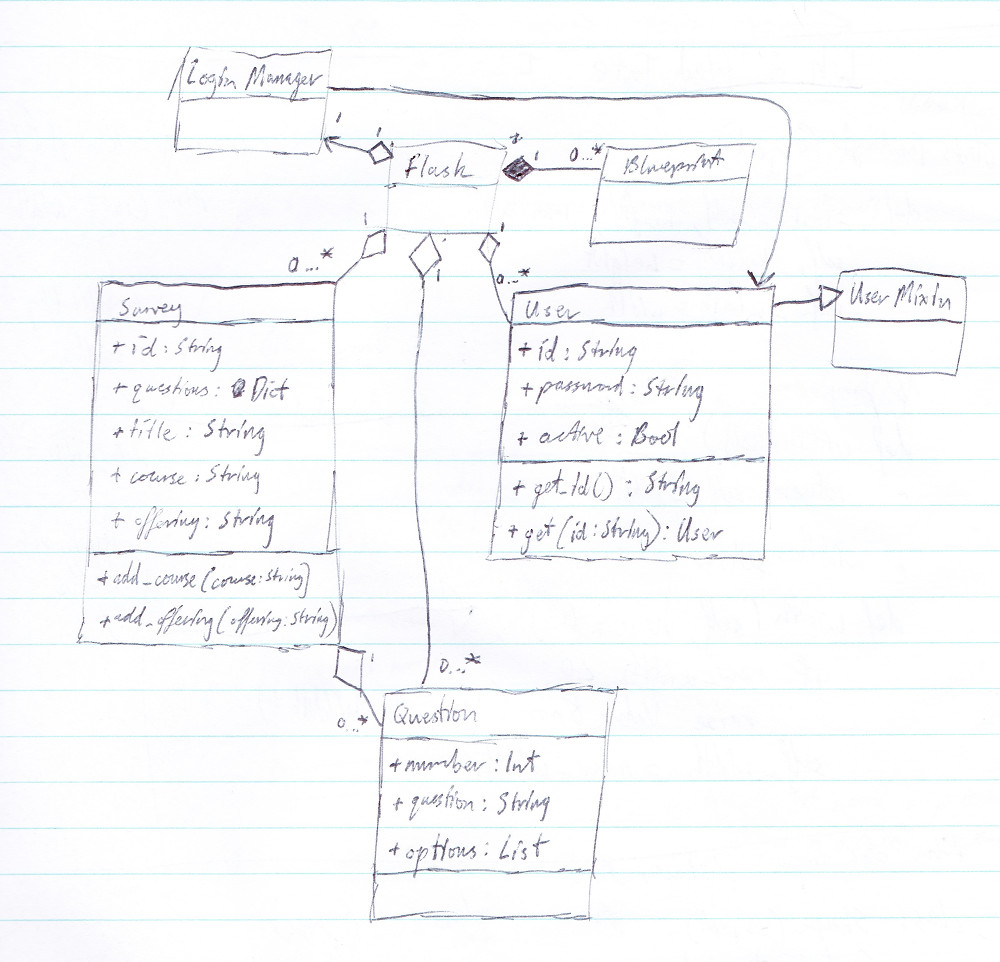 Login Manager
1
1
Flask
*
1
0...*
Blueprint
1
0...*
1
1
0..*
Survey
+ id : String
+ questions : Dict
+ title : String
+ course : String
+ offering : String
+ add_course (course : String)
+ add_offering (offering : String)
User
+ id : String
+ password : String
+ active : Bool
+ get_id() : String
+ get (id : String) : User
User MixIn
1
0...*
0...*
Question
+ number : Int
+ question : String
+ options : List